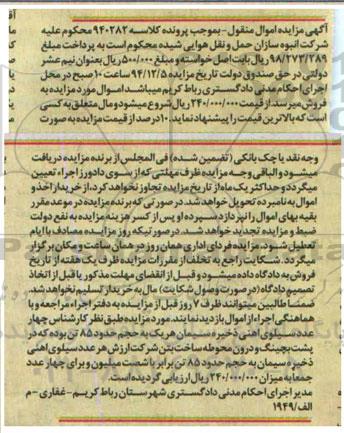 آگهی مزایده اموال منقول - بموجب پرونده کلاسه ۹۴۰۲۸۲ محکوم علیه
شرکت انبوه سازان حمل و نقل هوایی شیده محکوم است به پرداخت مبلغ
۹۸/۲۷۳/۲۸۹ ریال بابت اصل خواسته و مبلغ ۵۰۰/۰۰۰ ریال بعنوان نیم عشر
دولتی در حق صندوق دولت تاریخ مزایده ۹۴/۱۲/۵ ساعت ۱۰ صبح در محل
اجرای احکام مدنی دادگستری رباط کریم میباشد اموال مورد مزایده به
فروش میرسد از قیمت ۲۴۰/۰۰۰/۰۰۰ ریال شروع میشود و مال متعلق به کسی
است که بالاترین قیمت را پیشنهاد نماید. ۱۰ درصد از قیمت مزایده به صورت
وجه نقد یا چک بانکی (تضمین شده) فی المجلس از برنده مزایده دریافت
میشود و الباقی وجه مزایده ظرف مهلتی که از سوی دادورز اجراء تعیین
میگردد و حداکثر یک ماه از تاریخ مزایده تجاوز نخواهد کرد، از خریدار اخذ و
اموال به نامبرده تحویل خواهد شد. در صورتی که برنده مزایده در موعد مقرر
بقیه بهای اموال را نپردازد سپرده او پس از کسر هزینه مزایده به نفع دولت
ضبط و مزایده تجدید خواهد شد. در صورتیکه روز مزایده مصادف با ایام
تعطیل شود، مزایده فردای اداری همان روز در همان ساعت و مکان برگزار
میگردد. شکایت راجع به تخلف از مقررات مزایده ظرف یک هفته از تاریخ
فروش به دادگاه داده میشود و قبل از انقضای مهلت مذکور یا قبل از اتخاذ
تصمیم دادگاه (در صورت وصول شکایت) مال به خریدار تسلیم نخواهد شد.
ضمنا طالبین میتوانند ظرف ۷ روز قبل از مزایده به دفتر اجراء مراجعه و با
هماهنگی اجراء از اموال بازدید نمایند. مورد مزایده طبق نظر کارشناسی چهار
عدد سیلوی آهنی ذخیره سیمان هر یک به حجم حدود ۸۵ تن بوده که در
پشت بچینگ و درون محوطه ساخت بتن شرکت ارزش هر عدد سیلوی آهنی
ذخیره سیمان به حجم حدود ۸۵ تن برابر با شصت میلیون و برای چهار عدد
جمعا به میزان ۲۴۰/۰۰۰/۰۰۰ ریال ارزیابی گردیده است.
مدیر اجرای احکام مدنی دادگستری شهرستان رباط کریم - غفاری - م
الف/۱۹۴۹